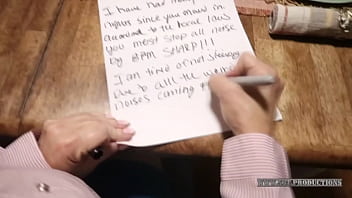 I have had many
nights since you moved in
according to the house laws
you most stop all noise
by 8PM SHARP!!!
I am tire of not sleeping
Due to all the weird
noises coming